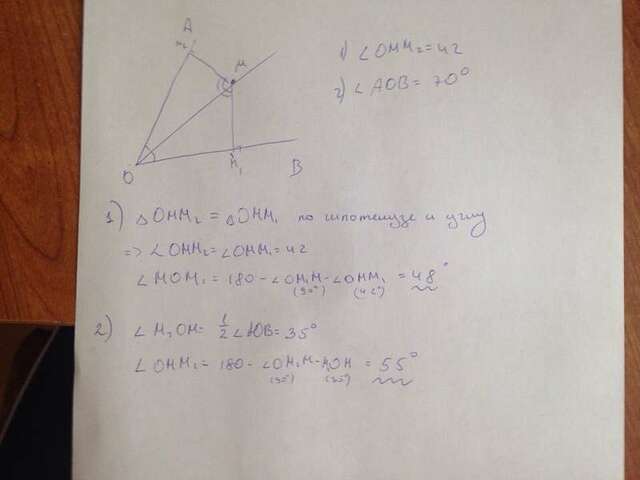 A
M₂
M
O
M₁
B
1) ∠OMM₂=42
2) ∠AOB = 70°
1) △OMM₂ = △OMM₁ по гипотенузе и углу
=> ∠OMM₂=∠OMM₁=42
∠MOM₁ = 180 - ∠OM₁M - ∠OMM₁ = 48°
(90°) (42°)
2) ∠M₂OM = 1/2 ∠AOB = 35°
∠OMM₂ = 180 - ∠OM₂M - = 55°
(90°) (35°)